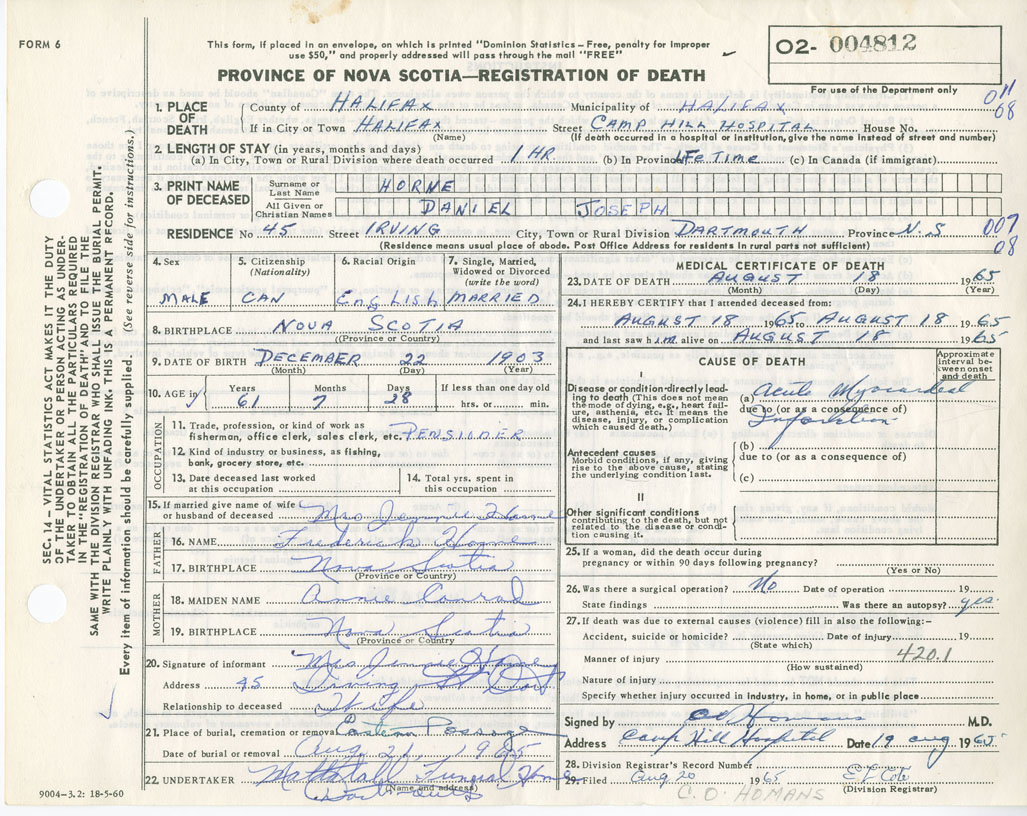 FORM 6
This form, if placed in an envelope, on which is printed "Dominion Statistics – Free, penalty for improper
use $50," and properly addressed will pass through the mail "FREE"
PROVINCE OF NOVA SCOTIA—REGISTRATION OF DEATH
O2- 004812
For use of the Department only
011
08
1. PLACE OF DEATH
County of HALIFAX Municipality of HALIFAX
If in City or Town HALIFAX Street CAMP HILL HOSPITAL House No.
(Name) (If death occurred in a hospital or institution, give the name instead of street and number)
2. LENGTH OF STAY (in years, months and days)
(a) In City, Town or Rural Division where death occurred 1 HR (b) In Province LIFE TIME (c) In Canada (if immigrant)
3. PRINT NAME OF DECEASED
Surname or Last Name HORNE
All Given or Christian Names DANIEL JOSEPH
RESIDENCE No 45 Street IRVING City, Town or Rural Division DARTMOUTH Province N.S
(Residence means usual place of abode. Post Office Address for residents in rural parts not sufficient)
007
08
4. Sex
MALE
5. Citizenship
(Nationality)
CAN
6. Racial Origin
English
7. Single, Married,
Widowed or Divorced
(write the word)
MARRIED
8. BIRTHPLACE NOVA SCOTIA
(Province or Country)
9. DATE OF BIRTH DECEMBER 22 1903
(Month) (Day) (Year)
10. AGE in
Years Months Days If less than one day old
61 7 28 hrs. or min.
OCCUPATION
11. Trade, profession, or kind of work as
fisherman, office clerk, sales clerk, etc. PENSIONER
12. Kind of industry or business, as fishing,
bank, grocery store, etc.
13. Date deceased last worked
at this occupation
14. Total yrs. spent in
this occupation
15. If married give name of wife
or husband of deceased Mrs Jennie Horne
FATHER
16. NAME Frederick Horne
17. BIRTHPLACE Nova Scotia
(Province or Country)
MOTHER
18. MAIDEN NAME Annie Conrad
19. BIRTHPLACE Nova Scotia
(Province or Country)
20. Signature of informant Mrs Jennie Horne
Address 45 Irving St Dart
Relationship to deceased Wife
21. Place of burial, cremation or removal Eastern Passage
Date of burial or removal Aug 21, 1965
22. UNDERTAKER Mattatall Funeral Home
(Name and address)
9004–3.2: 18-5-60
MEDICAL CERTIFICATE OF DEATH
23. DATE OF DEATH AUGUST 18 1965
(Month) (Day) (Year)
24. I HEREBY CERTIFY that I attended deceased from:
AUGUST 18 1965 to AUGUST 18 1965
and last saw him alive on AUGUST 18 1965
CAUSE OF DEATH
Approximate
interval be-
tween onset
and death
I
Disease or condition directly lead-
ing to death (This does not mean
the mode of dying, e.g., heart fail-
ure, asthenia, etc. It means the
disease, injury, or complication
which caused death.)
(a) Acute Myocardial
due to (or as a consequence of)
Infarction
Antecedent causes
Morbid conditions, if any, giving
rise to the above cause, stating
the underlying condition last.
(b)
due to (or as a consequence of)
(c)
II
Other significant conditions
contributing to the death, but not
related to the disease or condi-
tion causing it.
25. If a woman, did the death occur during
pregnancy or within 90 days following pregnancy?
(Yes or No)
26. Was there a surgical operation? No Date of operation 19
State findings Was there an autopsy? yes
27. If death was due to external causes (violence) fill in also the following:–
Accident, suicide or homicide? Date of injury 19
(State which)
Manner of injury 420.1
(How sustained)
Nature of injury
Specify whether injury occurred in industry, in home, or in public place
Signed by CO Homans M.D.
Address Camp Hill Hospital Date 19 Aug 1965
28. Division Registrar's Record Number
29. Filed Aug 20 1965
(Division Registrar)
C. O. HOMANS
SEC. 14 – VITAL STATISTICS ACT MAKES IT THE DUTY
OF THE UNDERTAKER OR PERSON ACTING AS UNDER-
TAKER TO OBTAIN ALL THE PARTICULARS REQUIRED
IN THE "REGISTRATION OF DEATH" AND TO FILE THE
SAME WITH THE DIVISION REGISTRAR WHO SHALL ISSUE THE BURIAL PERMIT.
WRITE PLAINLY WITH UNFADING INK. THIS IS A PERMANENT RECORD.
Every item of information should be carefully supplied. (See reverse side for instructions.)